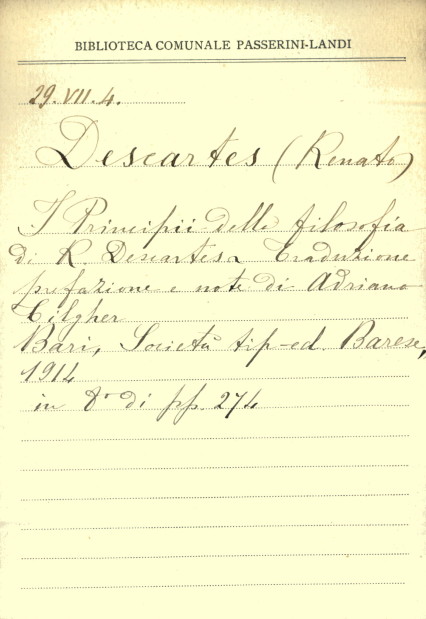 BIBLIOTECA COMUNALE PASSERINI-LANDI
29.VII.4.
Descartes (Renato)
I Principii della filosofia
di R. Descartes. Traduzione
prefazione e note di Adriano
Tilgher
Bari, Società tip-ed. Barese,
1914
in 8° di pp. 274